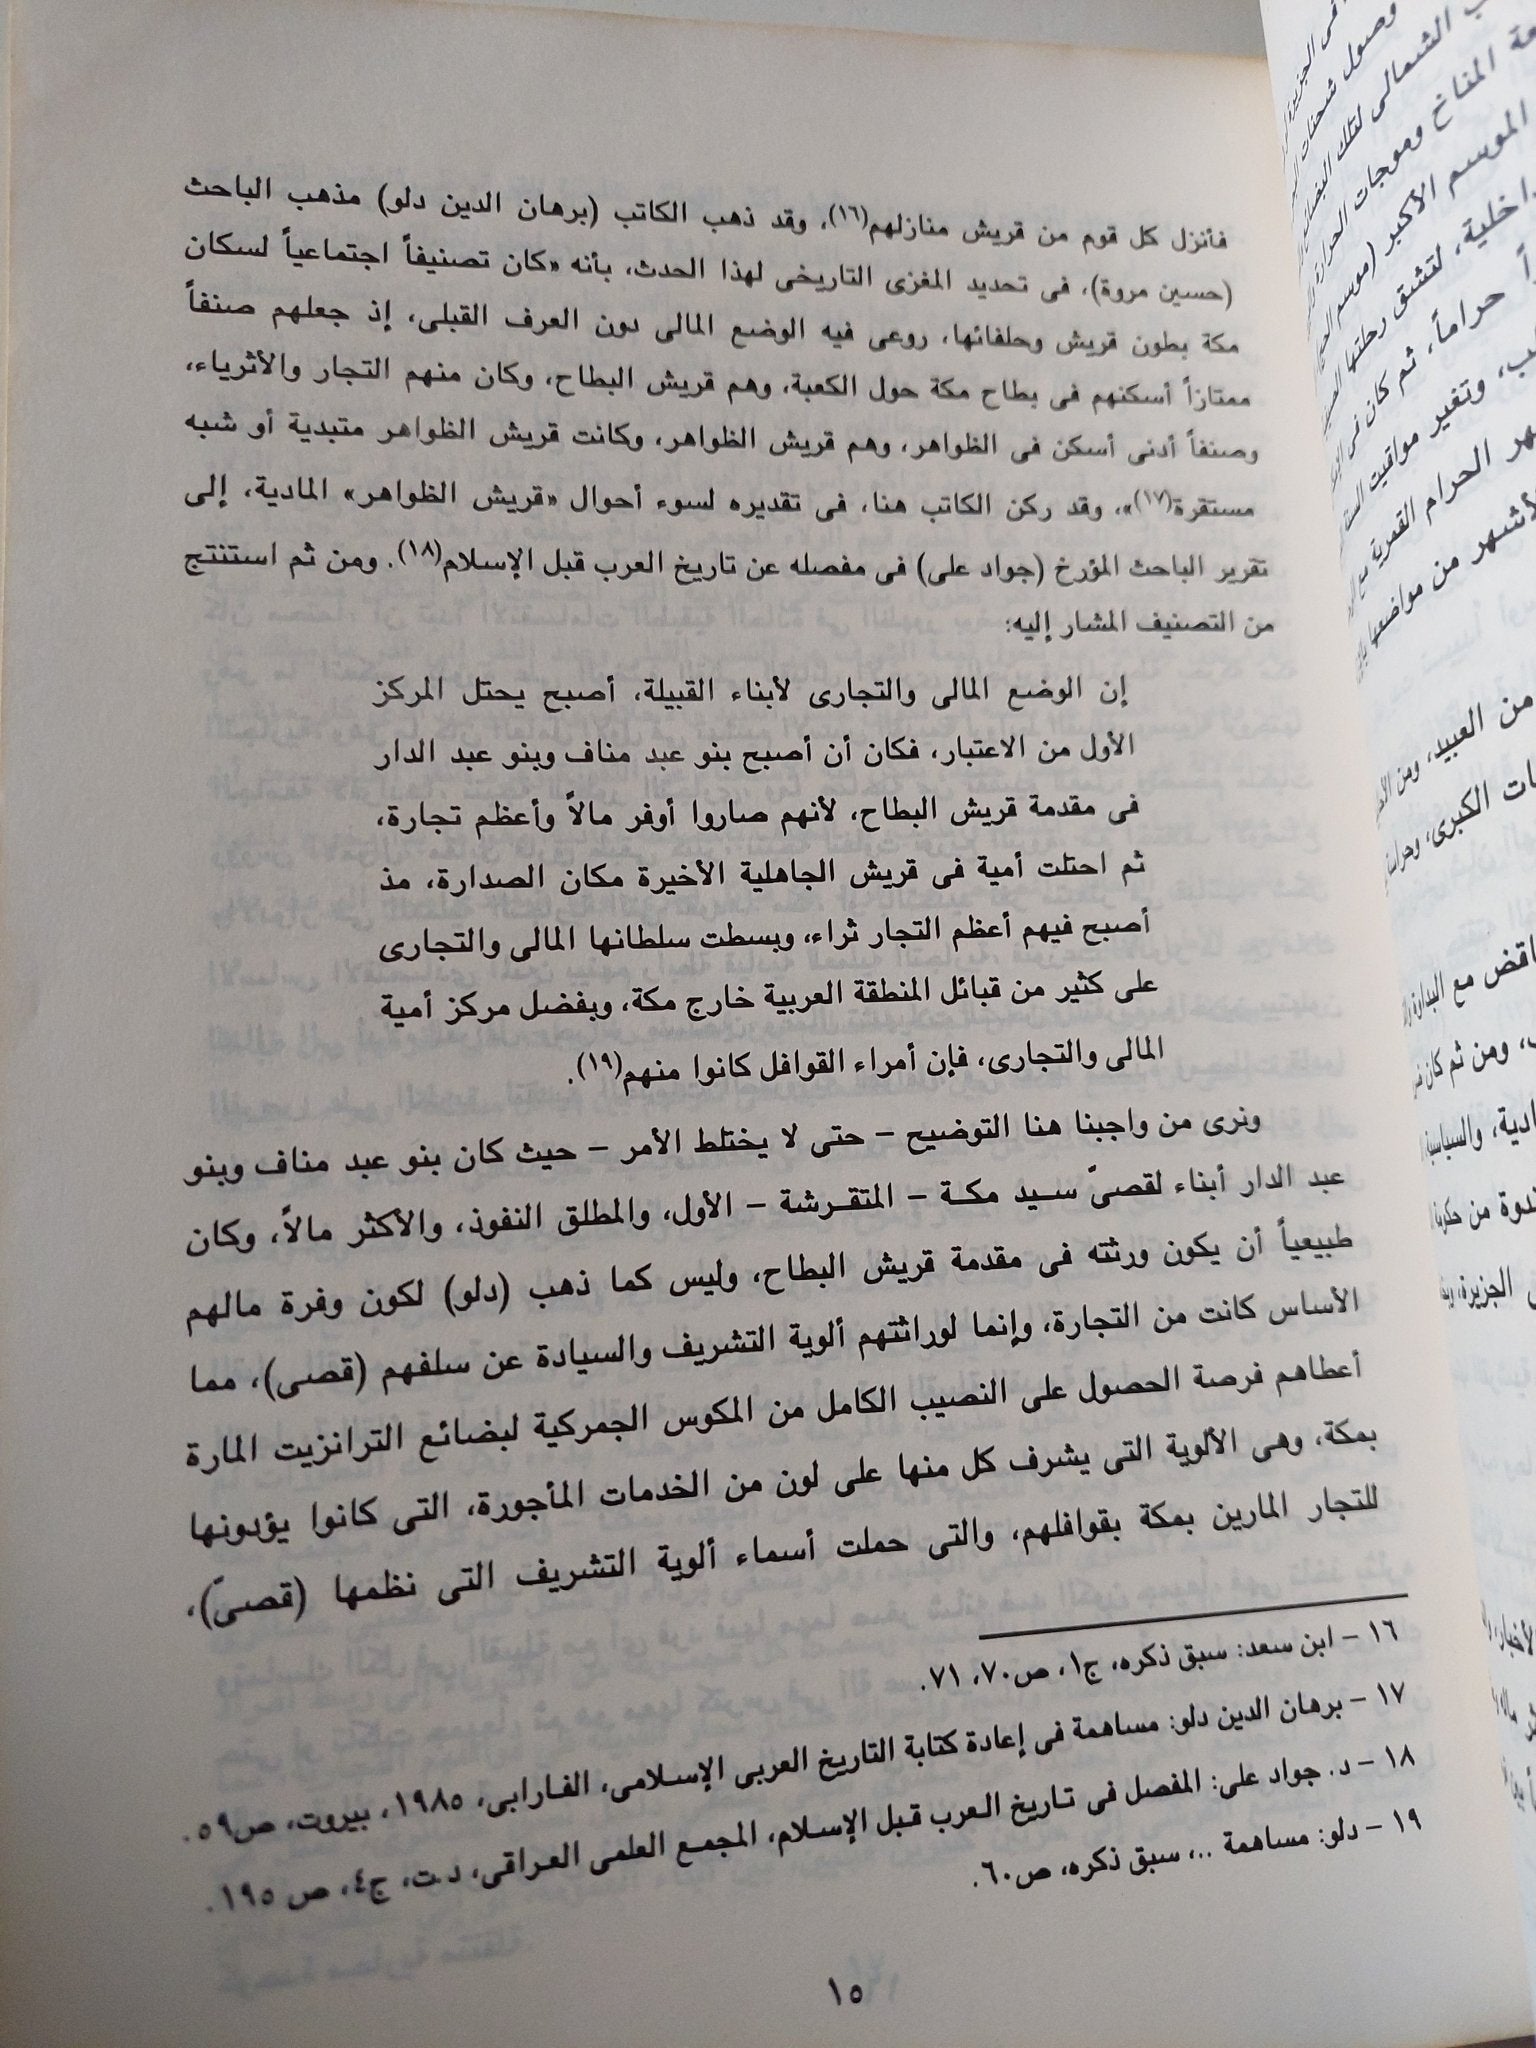 فأنزل كل قوم من قريش منازلهم(١٦)، وقد ذهب الكاتب (برهان الدين دلو) مذهب الباحث
(حسين مروة)، فى تحديد المغزى التاريخى لهذا الحدث، بأنه «كان تصنيفاً اجتماعياً لسكان
مكة بطون قريش وحلفائها، روعى فيه الوضع المالى دون العرف القبلى، إذ جعلهم صنفاً
ممتازاً أسكنهم فى بطاح مكة حول الكعبة، وهم قريش البطاح، وكان منهم التجار والأثرياء،
وصنفاً أدنى أسكن فى الظواهر، وهم قريش الظواهر، وكانت قريش الظواهر متبدية أو شبه
مستقرة(١٧)»، وقد ركن الكاتب هنا، فى تقديره لسوء أحوال «قريش الظواهر» المادية، إلى
تقرير الباحث المؤرخ (جواد على) فى مفصله عن تاريخ العرب قبل الإسلام(١٨). ومن ثم استنتج
من التصنيف المشار إليه:
إن الوضع المالى والتجارى لأبناء القبيلة، أصبح يحتل المركز
الأول من الاعتبار، فكان أن أصبح بنو عبد مناف وبنو عبد الدار
فى مقدمة قريش البطاح، لأنهم صاروا أوفر مالاً وأعظم تجارة،
ثم احتلت أمية فى قريش الجاهلية الأخيرة مكان الصدارة، مذ
أصبح فيهم أعظم التجار ثراء، وبسطت سلطانها المالى والتجارى
على كثير من قبائل المنطقة العربية خارج مكة، وبفضل مركز أمية
المالى والتجارى، فإن أمراء القوافل كانوا منهم(١٩).
ونرى من واجبنا هنا التوضيح – حتى لا يختلط الأمر – حيث كان بنو عبد مناف وبنو
عبد الدار أبناء لقصىّ سيد مكة – المتقرشة – الأول، والمطلق النفوذ، والأكثر مالاً، وكان
طبيعياً أن يكون ورثته فى مقدمة قريش البطاح، وليس كما ذهب (دلو) لكون وفرة مالهم
الأساس كانت من التجارة، وإنما لوراثتهم ألوية التشريف والسيادة عن سلفهم (قصى)، مما
أعطاهم فرصة الحصول على النصيب الكامل من المكوس الجمركية لبضائع الترانزيت المارة
بمكة، وهى الألوية التى يشرف كل منها على لون من الخدمات المأجورة، التى كانوا يؤدونها
للتجار المارين بمكة بقوافلهم، والتى حملت أسماء ألوية التشريف التى نظمها (قصىّ)،
١٦ – ابن سعد: سبق ذكره، ج١، ص٧٠، ٧١.
١٧ – برهان الدين دلو: مساهمة فى إعادة كتابة التاريخ العربى الإسلامى، الفارابى، ١٩٨٥، بيروت، ص٥٩.
١٨ – د. جواد على: المفصل فى تاريخ العرب قبل الإسلام، المجمع العلمى العراقى، د.ت، ج٤، ص ١٩٥.
١٩ – دلو: مساهمة ..، سبق ذكره، ص٦٠.
١٥
وصول شحنات
الشمالى لتلك
المناخ وموجات الحرارة
الموسم الأكبر (موسم الحج
لتشق رحلتها
حراماً، ثم كان فى
وتغير مواقيت
الحرام القمرية مع
من مواضعها
من العبيد، ومن
الكبرى،
مع البداوة
ومن ثم كان
والسياسية
من حكومة
الجزيرة،